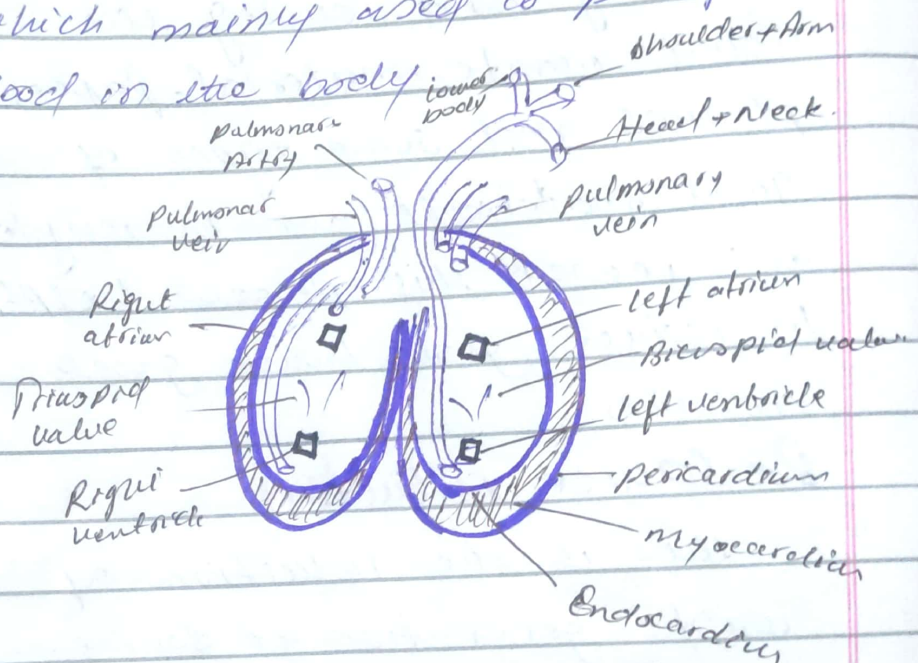 which mainly used to
ood in the body
lower
body
Shoulder + Arm
Head + Neck.
Pulmonar
Artry
Pulmonar
vein
pulmonary
vein
Right
atrium
left atrium
Bicuspid valve
Tricuspid
value
left ventricle
Right
ventricle
pericardium
Myocardium
Endocardium